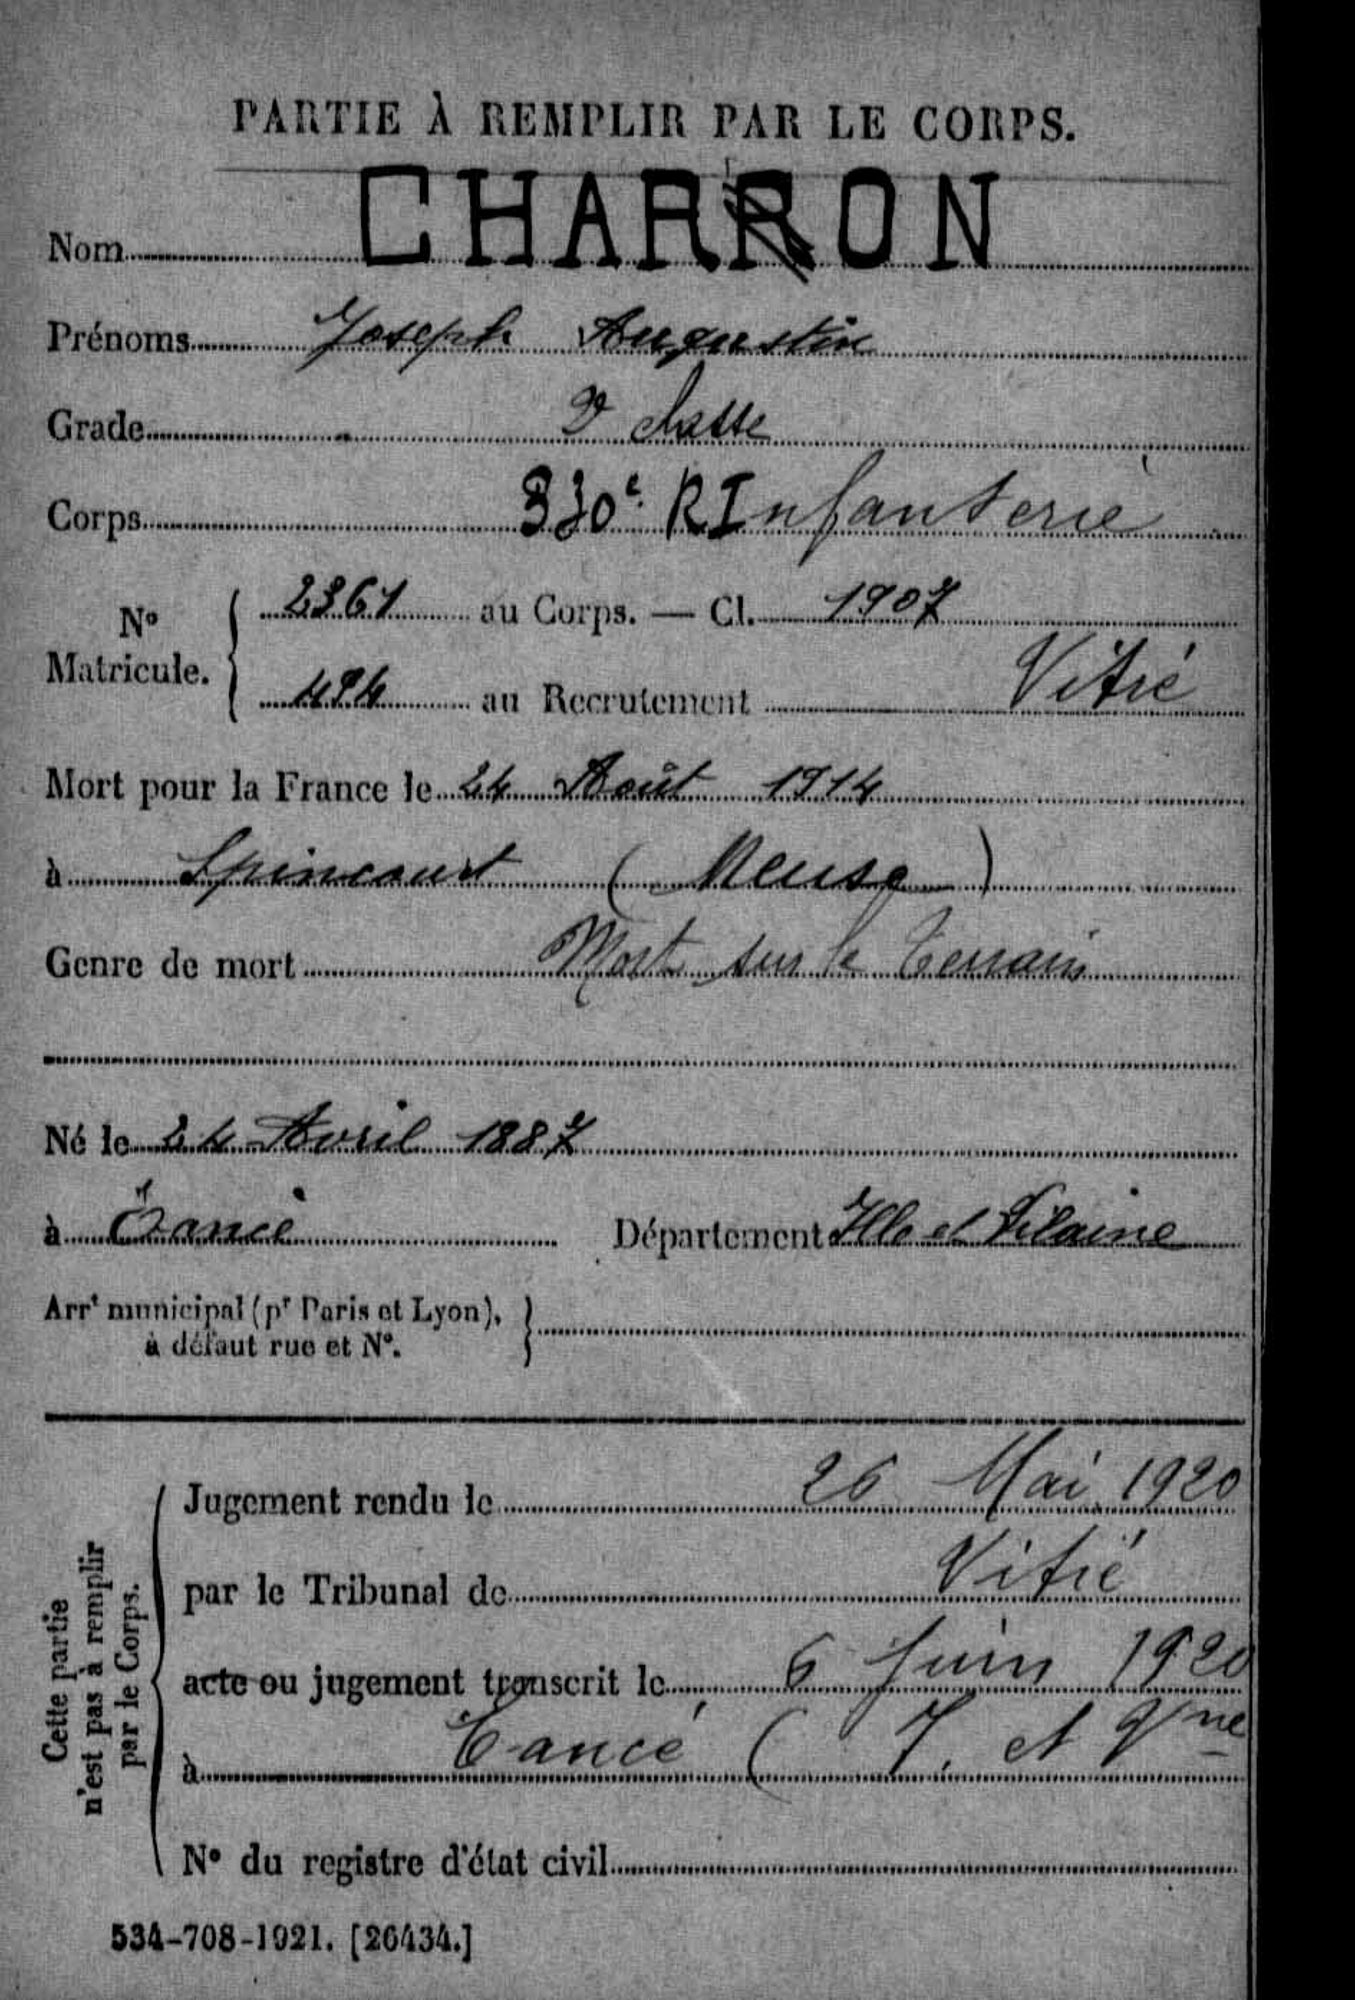 PARTIE À REMPLIR PAR LE CORPS.
Nom CHARRON
Prénoms Joseph Augustin
Grade 2e classe
Corps 330e R Infanterie
No Matricule. 2361 au Corps. — Cl. 1907
494 au Recrutement Vitré
Mort pour la France le 24 Août 1914
à Spincourt (Meuse)
Genre de mort Mort sur le terrain
Né le 24 Avril 1887
à Département Ille et Vilaine
Arrt municipal (pr Paris et Lyon),
à défaut rue et No.
Cette partie
n'est pas à remplir
par le Corps.
Jugement rendu le 26 Mai 1920
par le Tribunal de Vitré
acte ou jugement transcrit le 6 Juin 1920
à (I. et Vne
No du registre d'état civil
534-708-1921. [26434.]